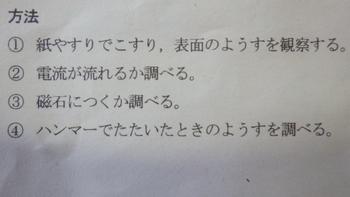 方法
① 紙やすりでこすり，表面のようすを観察する。
② 電流が流れるか調べる。
③ 磁石につくか調べる。
④ ハンマーでたたいたときのようすを調べる。